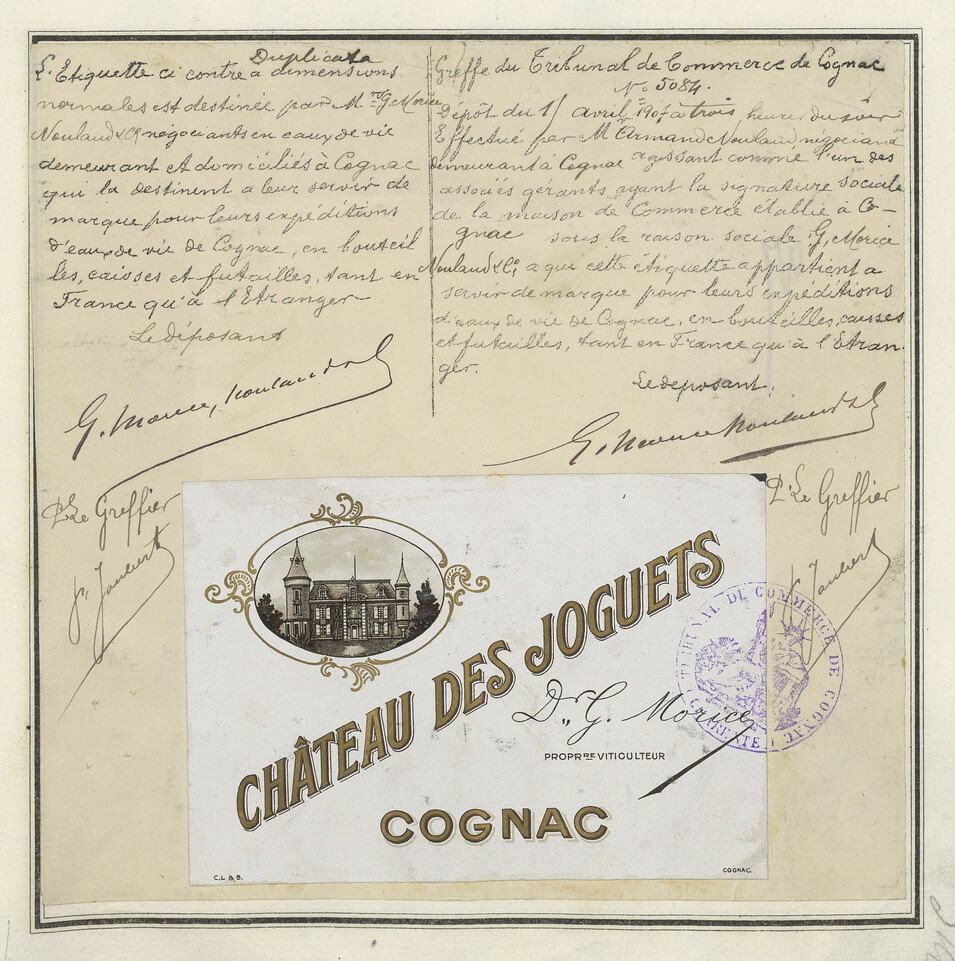 Duplicata
L'Etiquette ci contre a dimensions
normales est destinée par Mrs G. Morice
Noulaud & Co négociants en eaux de vie
demeurant et domiciliés à Cognac
qui la destinent a leur servir de
marque pour leurs expéditions
d'eaux de vie de Cognac, en bouteil
les, caisses et futailles, tant en
France qu'à l'Etranger
Le déposant
G. Morice, Noulaud & Co
Pr Le Greffier
Joubert
Greffe du Tribunal de Commerce de Cognac
No 5084.
Dépôt du avril 1907 à trois heures du soir
Effectué par M Armand Noulaud, négociant
demeurant à Cognac agissant comme l'un des
associés gérants ayant la signature sociale
de la maison de Commerce établie à Co-
gnac sous la raison sociale G. Morice
Noulaud & Co, a qui cette étiquette appartient a
servir de marque pour leurs expéditions
d'eaux de vie de Cognac, en bouteilles, caisses
et futailles, tant en France qu'à l'Etran-
ger.
Le deposant.
G. Morice Noulaud & Co
Pr Le Greffier
Joubert
CHÂTEAU DES JOGUETS
Dr. G. Morice
PROPRRE VITICULTEUR
COGNAC
C.L & B.
COGNAC.
TRIBUNAL DE COMMERCE DE COGNAC
CHARENTE